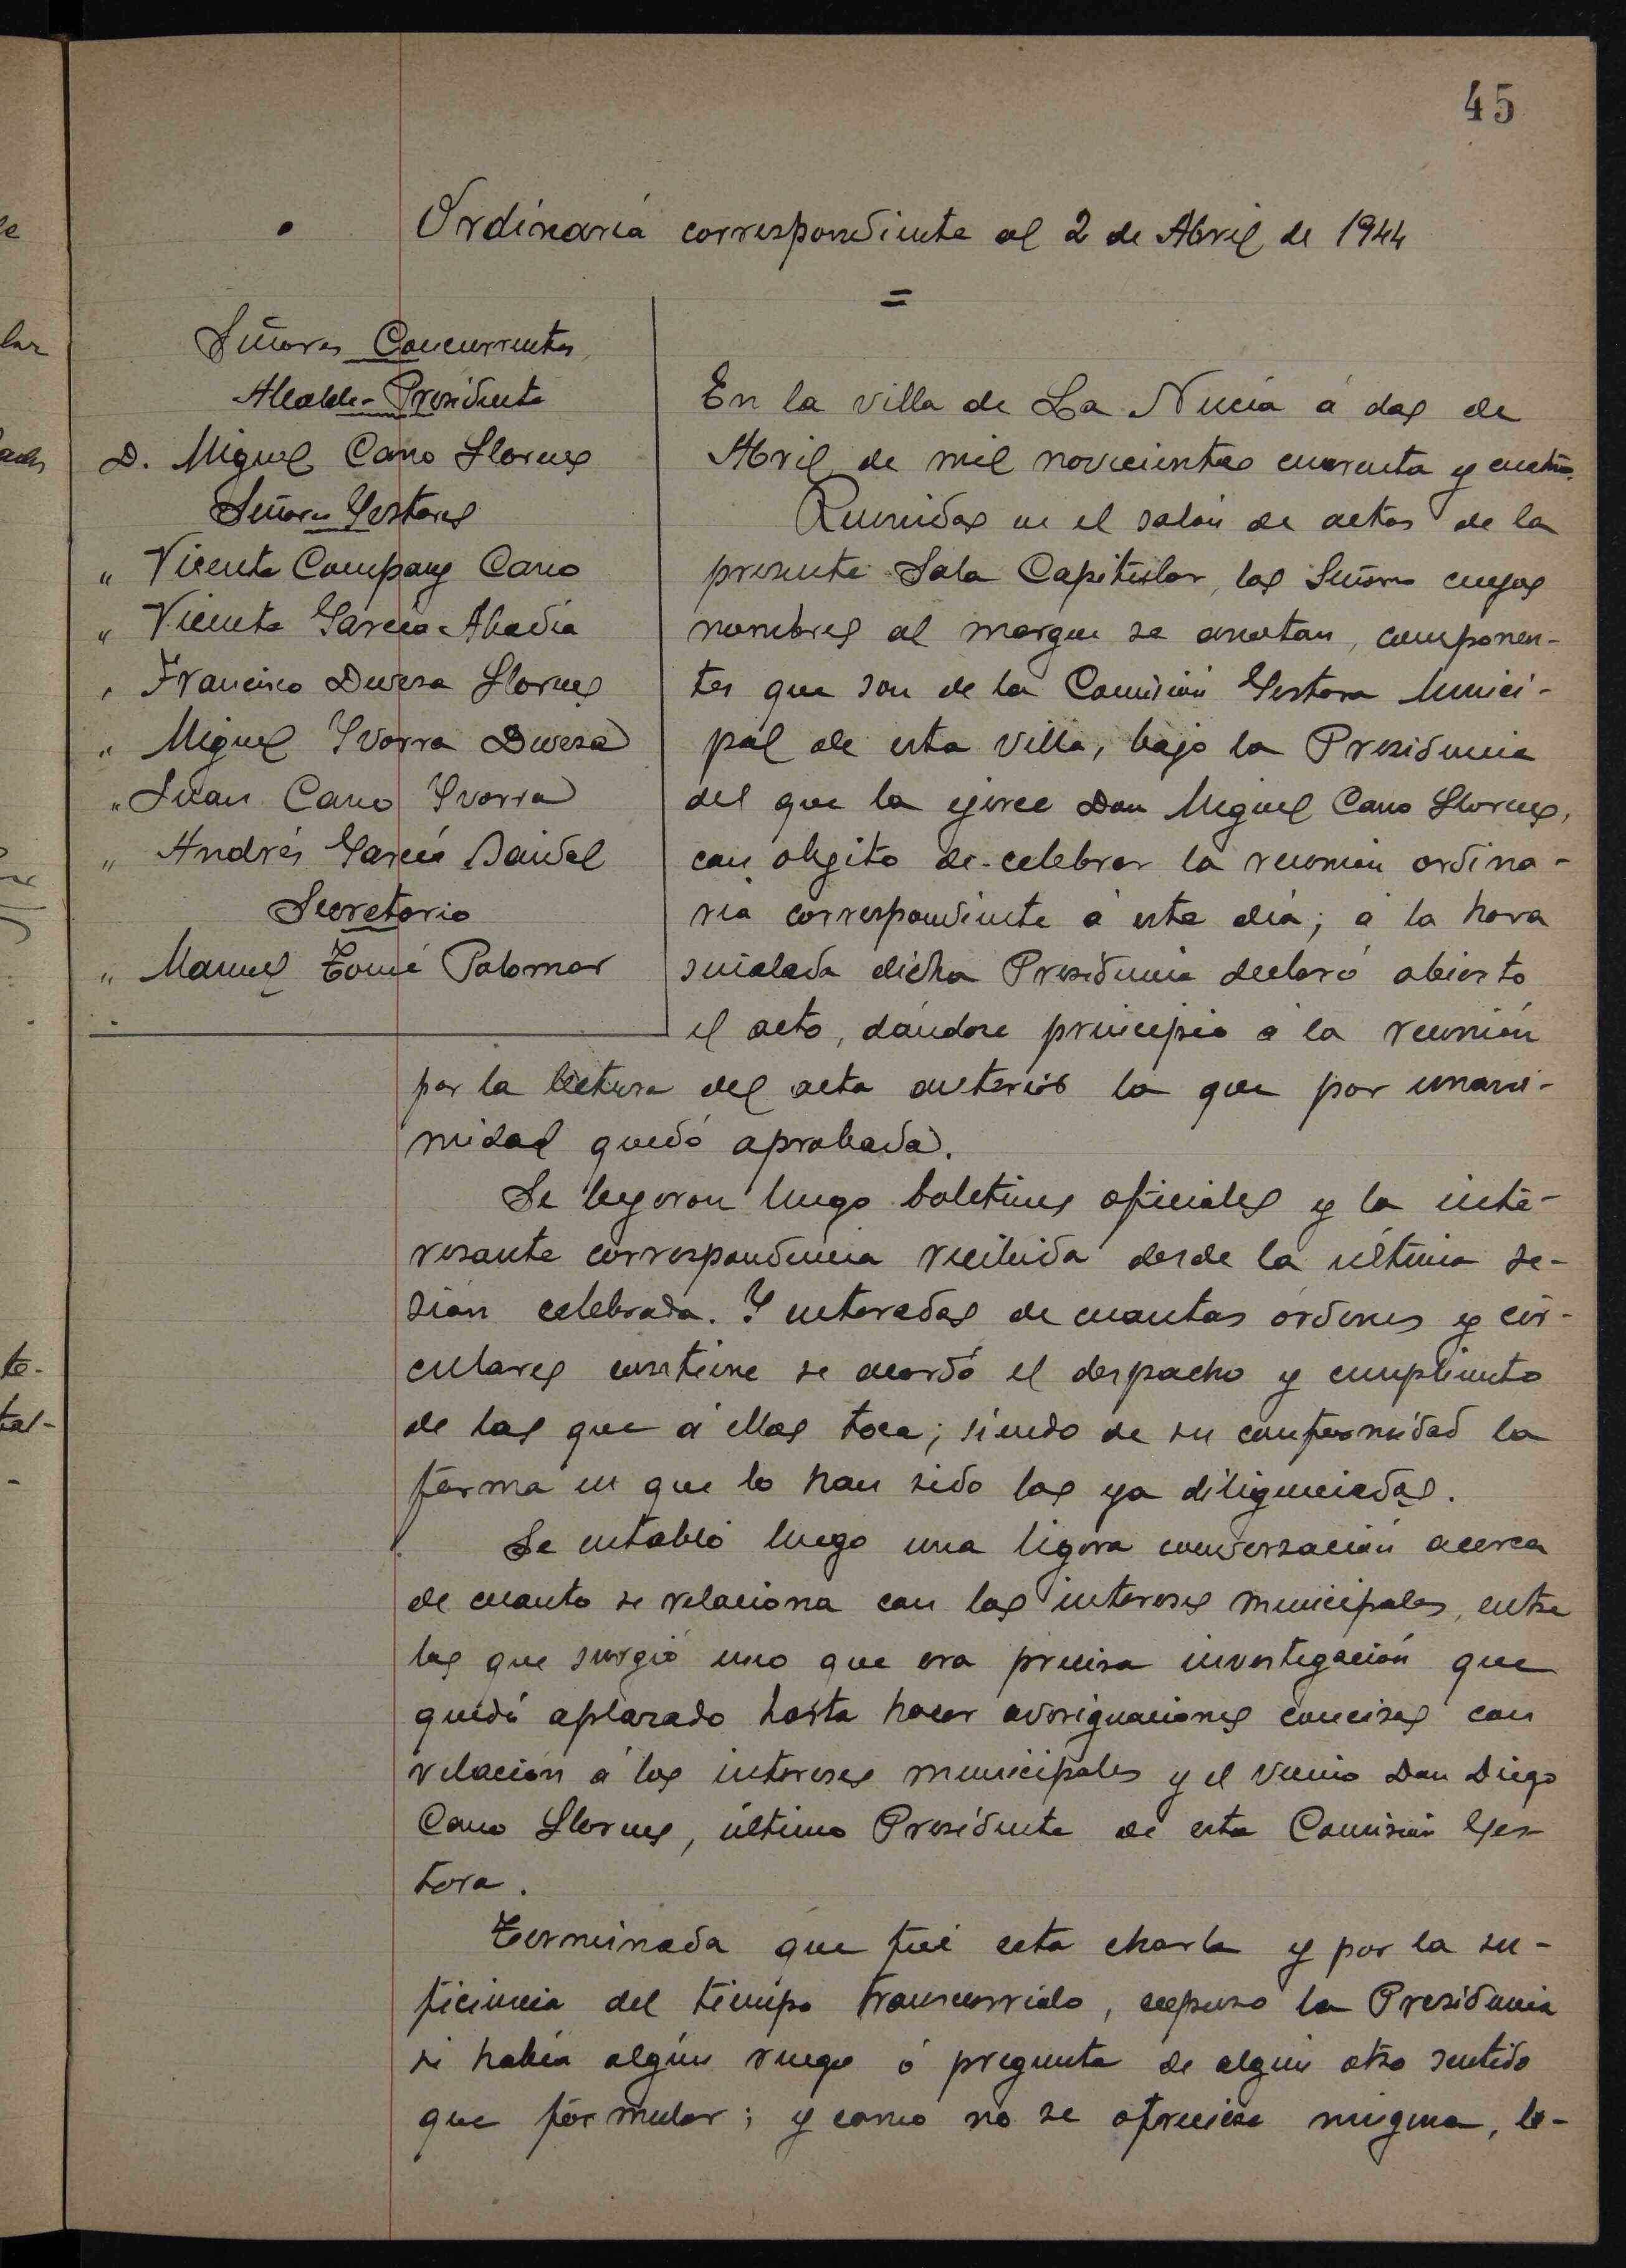 45
Ordinaria correspondiente al 2 de Abril de 1944
=
Señores Concurrentes
Alcalde-Presidente
D. Miguel Cano Llorens
Señores Gestores
" Vicente Company Cano
" Vicente García Abadía
" Francisco Devesa Llorens
" Miguel Yvorra Devesa
" Juan Cano Yvorra
" Andrés García Baidal
Secretario
" Manuel Tomé Palomar
En la villa de La Nucía á dos de
Abril de mil novecientos cuarenta y cuatro.
Reunidos en el salón de actos de la
presente Sala Capitular, los Señores cuyos
nombres al margen se anotan, componen-
tes que son de la Comisión Gestora Munici-
pal de esta villa, bajo la Presidencia
del que la ejerce Don Miguel Cano Llorens,
con objeto de celebrar la reunión ordina-
ria correspondiente á este día; á la hora
señalada dicha Presidencia declaró abierto
el acto, dándose principio á la reunión
por la lectura del acta anterior la que por unani-
midad quedó aprobada.
Se leyeron luego boletines oficiales y la inte-
resante correspondencia recibida desde la última se-
sión celebrada. Y enterados de cuantas órdenes y cir-
culares contiene se acordó el despacho y cumplimiento
de las que á ellos toca; siendo de su conformidad la
forma en que lo han sido las ya diligenciadas.
Se entabló luego una ligera conversación acerca
de cuanto se relaciona con los intereses municipales, entre
los que surgió uno que era precisa investigación que
quedó aplazado hasta hacer averiguaciones concisas con
relación á los intereses municipales y el vecino Don Diego
Cano Llorens, último Presidente de esta Comisión Ges-
tora.
Terminada que fué esta charla y por la su-
ficiencia del tiempo transcurrido, expuso la Presidencia
si había algún ruego ó pregunta de algún otro sentido
que formular; y como no se ofreciese ninguna, le-